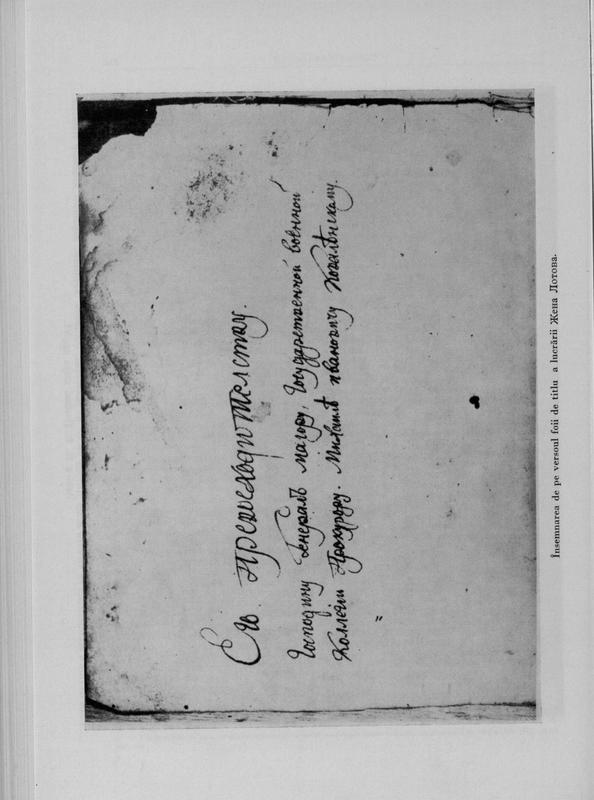 Его. Превосходителству.
Господину Генералъ маіору, Государственной военной
Коллегіи Прокурору. Михаилѣ ивановичу Ковалѣнскому.
Însemnarea de pe versoul foii de titlu a lucrării Жена Лотова.